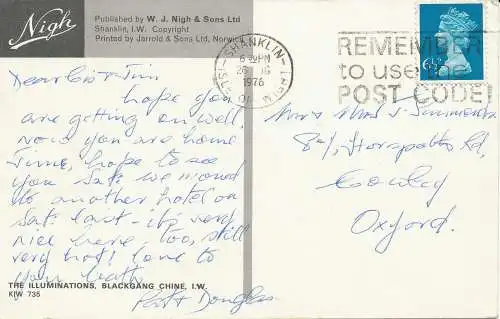 Nigh
Published by W. J. Nigh & Sons Ltd
Shanklin, I.W. Copyright
Printed by Jarrold & Sons Ltd, Norwich
SHANKLIN
6 - PM
1976
REMEMBER
to use the
POST CODE!
6½P
Dear Cis + Jim
hope you
are getting on well,
now you are home
Jim, hope to see
you Sat: we moved
to another hotel on
Sat: last - it's very
nice here, too, still
very hot! love to
you both
Douglas
Mr & Mrs J. Simmonds
Rd,
Cowley
Oxford.
THE ILLUMINATIONS, BLACKGANG CHINE, I.W.
KIW 735